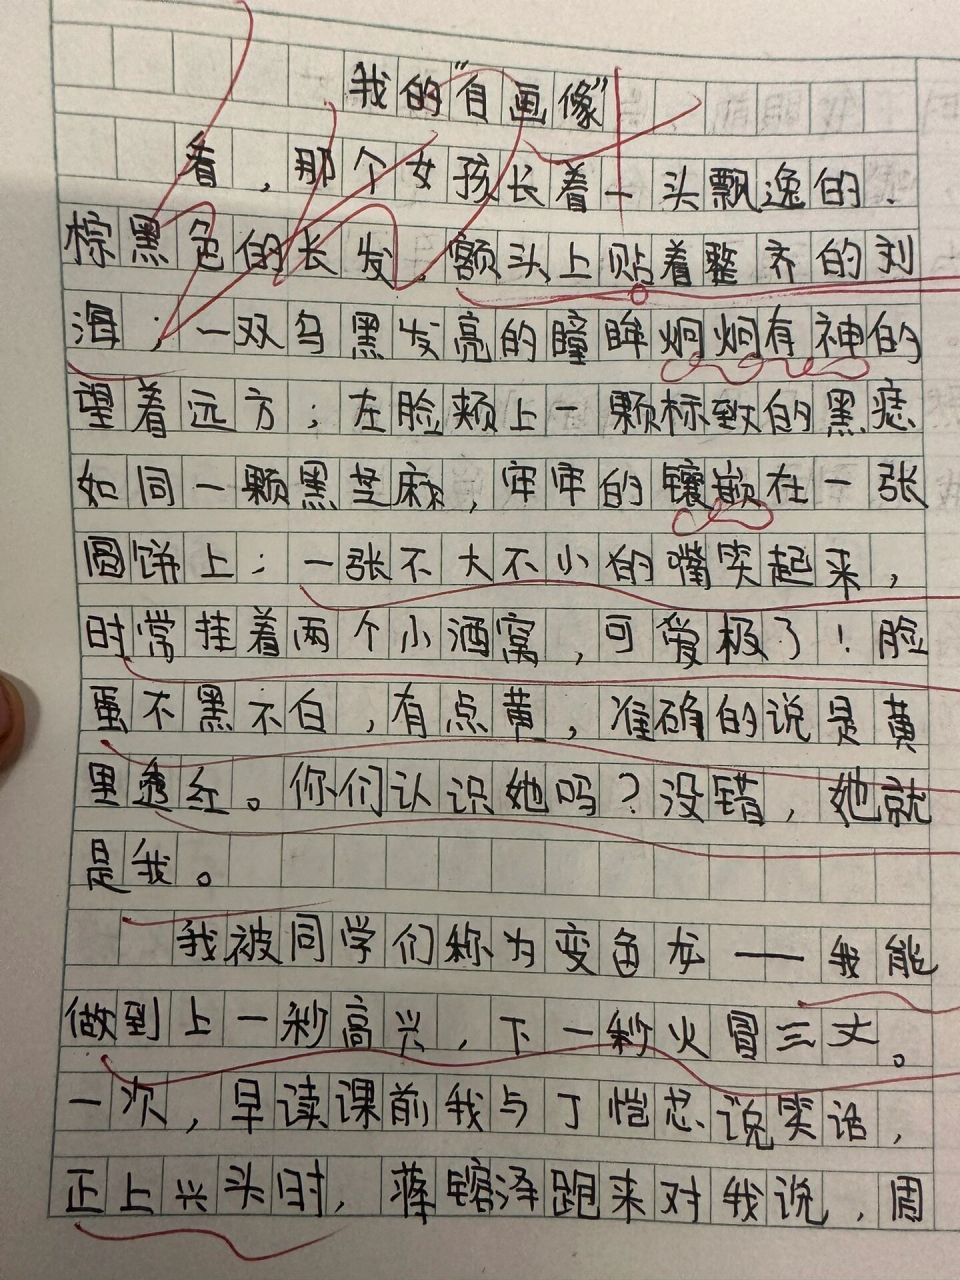 我的“自画像”
看，那个女孩长着一头飘逸的
棕黑色的长发，额头上贴着整齐的刘
海；一双乌黑发亮的瞳眸炯炯有神的
望着远方；左脸颊上一颗标致的黑痣
如同一颗黑芝麻，牢牢的镶嵌在一张
圆饼上；一张不大不小的嘴笑起来，
时常挂着两个小酒窝，可爱极了！脸
蛋不黑不白，有点黄，准确的说是黄
里透红。你们认识她吗？没错，她就
是我。
我被同学们称为变色龙——我能
做到上一秒高兴，下一秒火冒三丈。
一次，早读课前我与丁恺忿说笑话，
正上兴头时，蒋镕泽跑来对我说，周